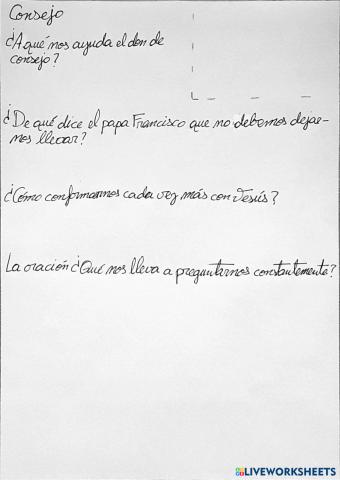 Consejo
¿A qué nos ayuda el don de
consejo?
¿De qué dice el papa Francisco que no debemos dejar-
nos llevar?
¿Cómo conformarnos cada vez más con Jesús?
La oración ¿Qué nos lleva a preguntarnos constantemente?
LIVEWORKSHEETS